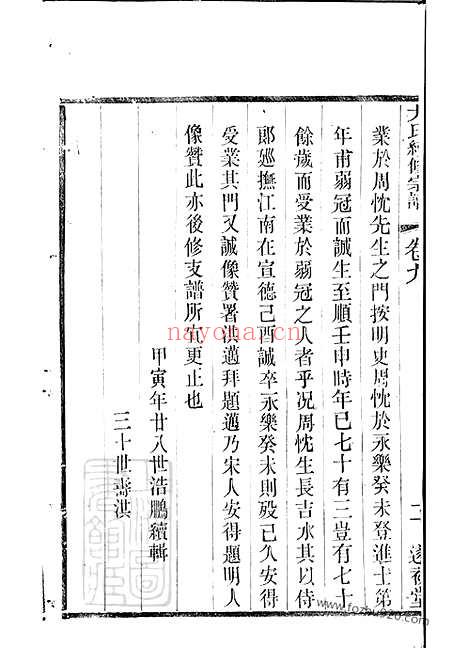 尤氏續修宗譜 卷九 二 遂初堂
業於周忱先生之門按明史周忱於永樂癸未登進士第
年甫弱冠而誠生至順壬申時年已七十有三豈有七十
餘歲而受業於弱冠之人者乎況周忱生長吉水其以侍
郎廵撫江南在宣德己酉誠卒永樂癸未則殁已久安得
受業其門又誠像贊署洪邁拜題邁乃宋人安得題明人
像贊此亦後修支譜所宜更止也
甲寅年廿八世浩鵬續輯
三十世壽淇
nayona.cn
www.yanjiu920.com